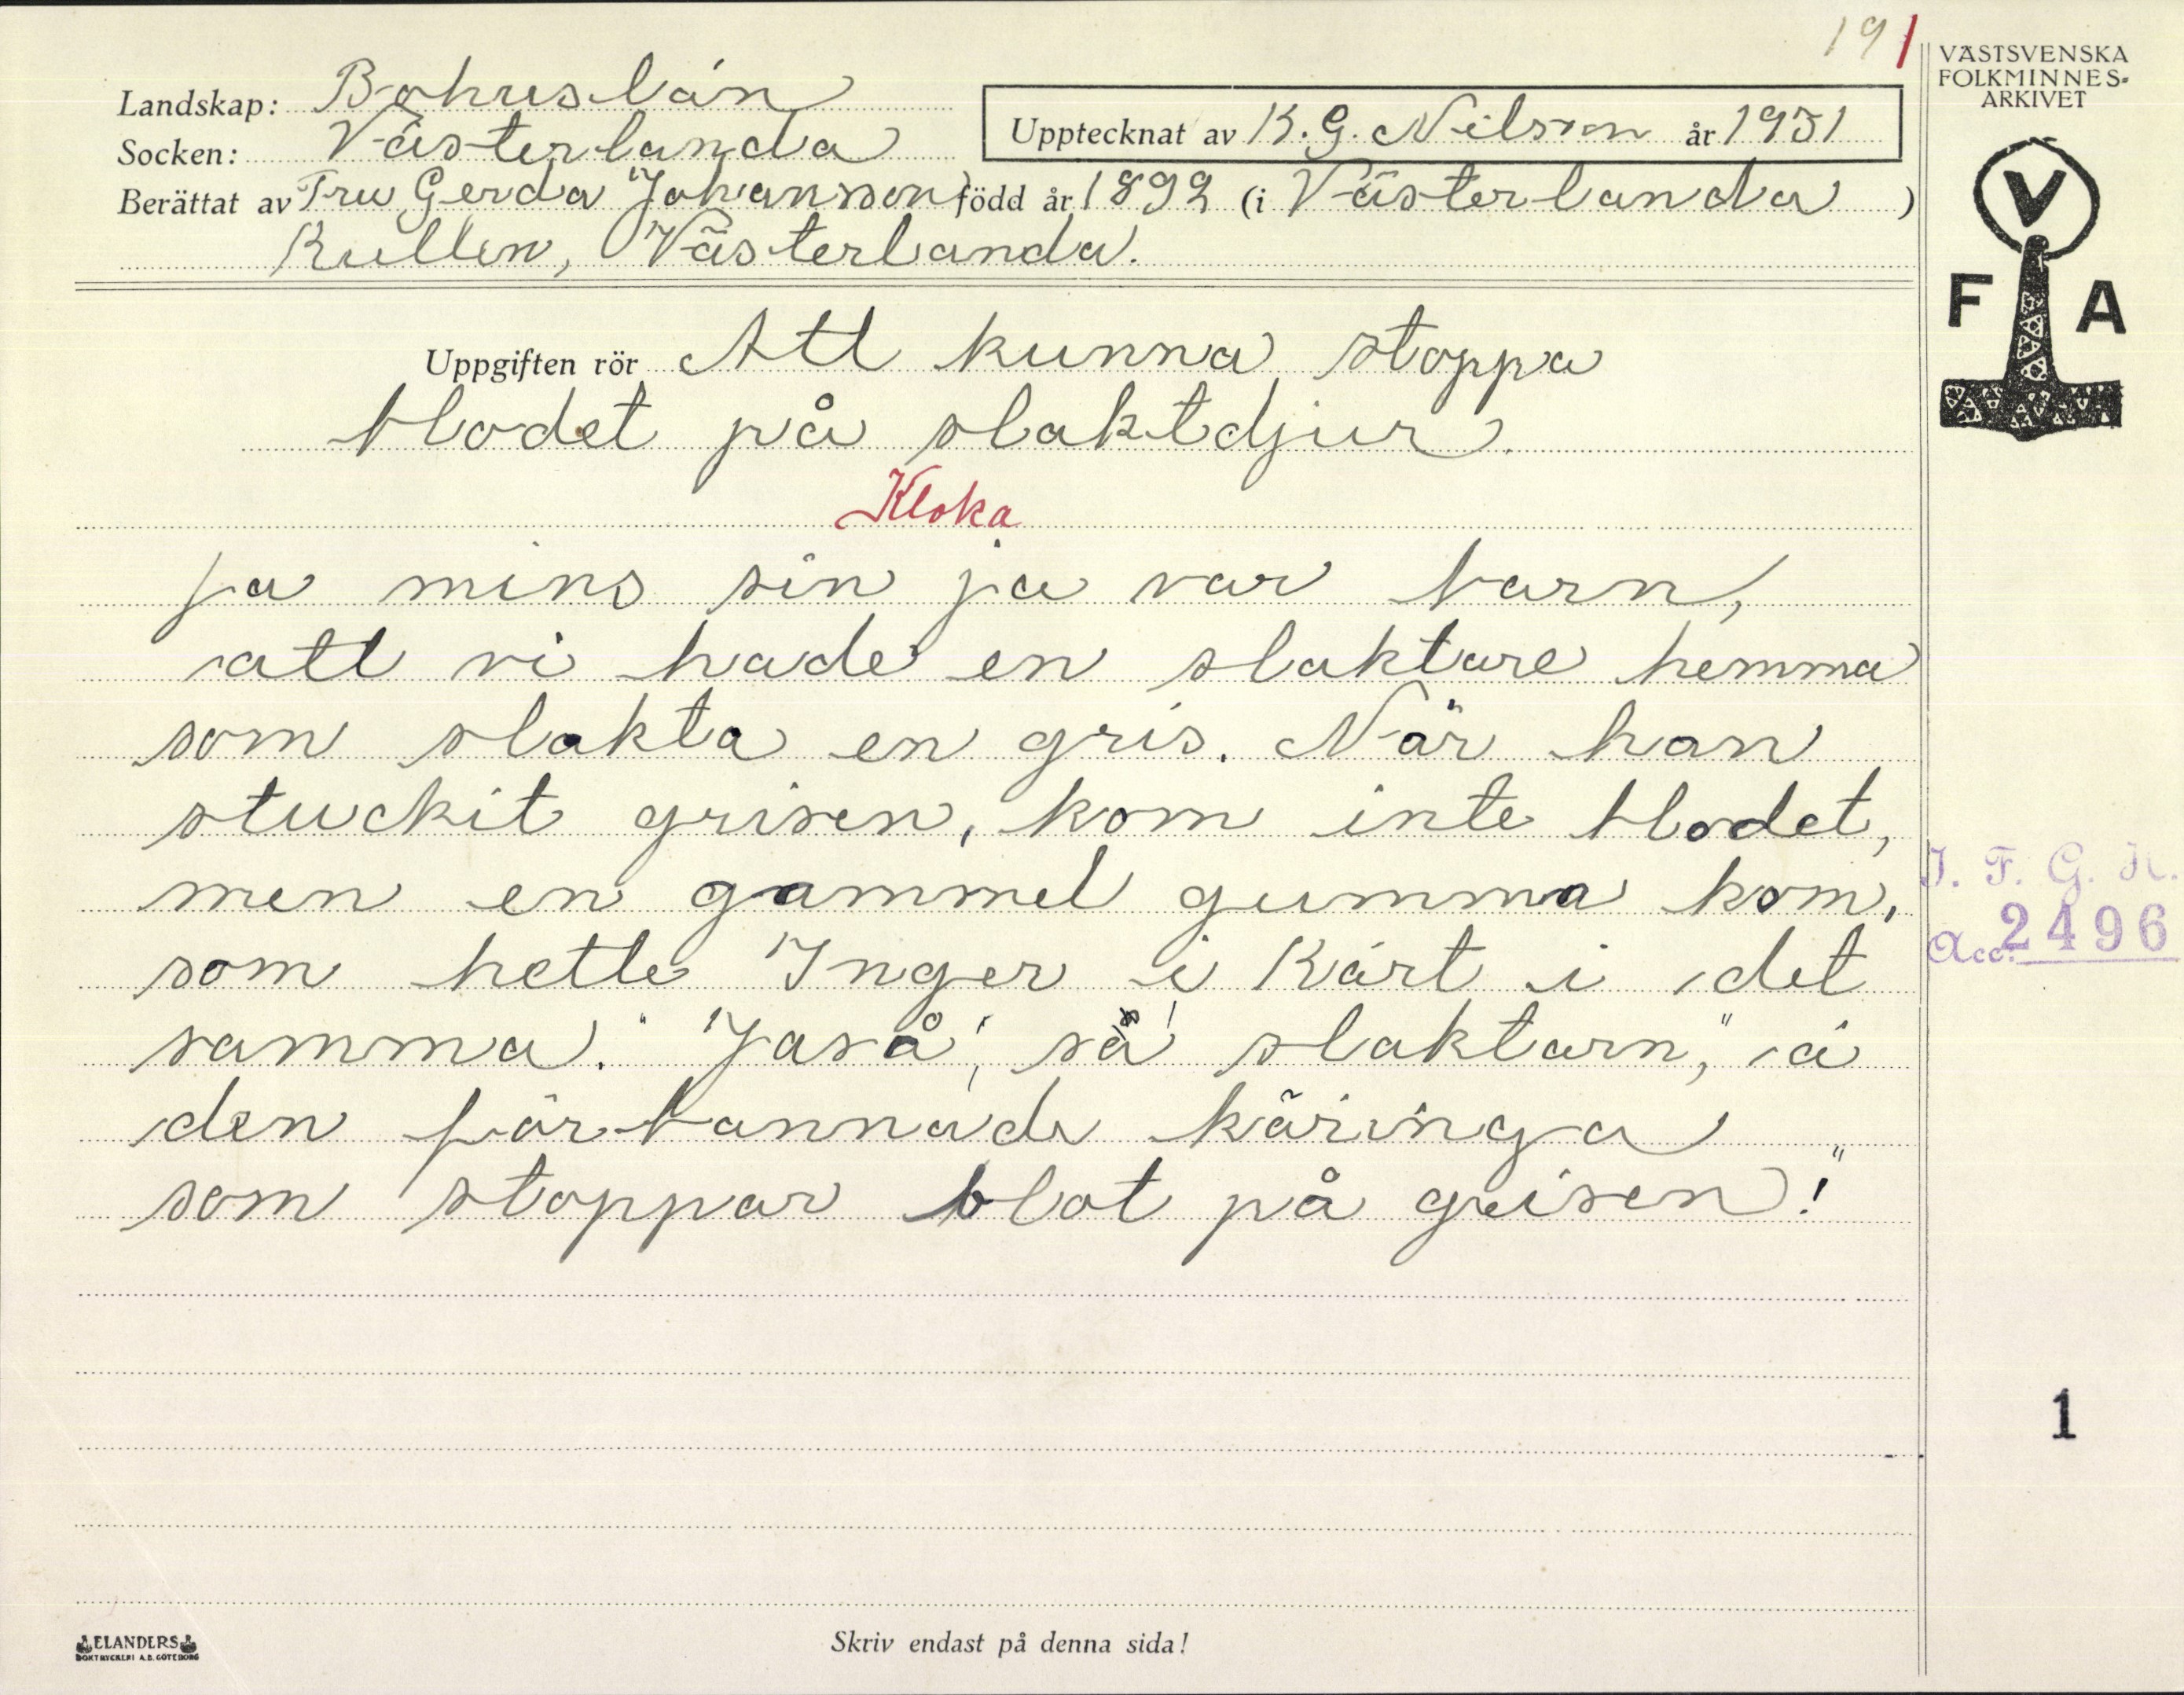 191
VÄSTSVENSKA
FOLKMINNES-
ARKIVET
Landskap: Bohuslän
Socken: Västerlanda
Upptecknat av K. G. Nilson år 1931
Berättat av Fru Gerda Johansson född år 1892 (i Västerlanda)
Kullen, Västerlanda.
V
F A
Uppgiften rör Att kunna stoppa
blodet på slaktdjur.
Kloka
Ja mins sin ja var barn,
att vi hade en slaktare hemma
som slakta en gris. När han
stuckit grisen, kom inte blodet,
men en gammel gumma kom,
som hette Inger i Kärt i det
samma. "Jaså", sä slaktarn, "ä
den förbannade käringa
som stoppar blot på grisen!"
I. F. G. H.
Acc. 2496
1
ELANDERS
BOKTRYCKERI A.B. GÖTEBORG
Skriv endast på denna sida!